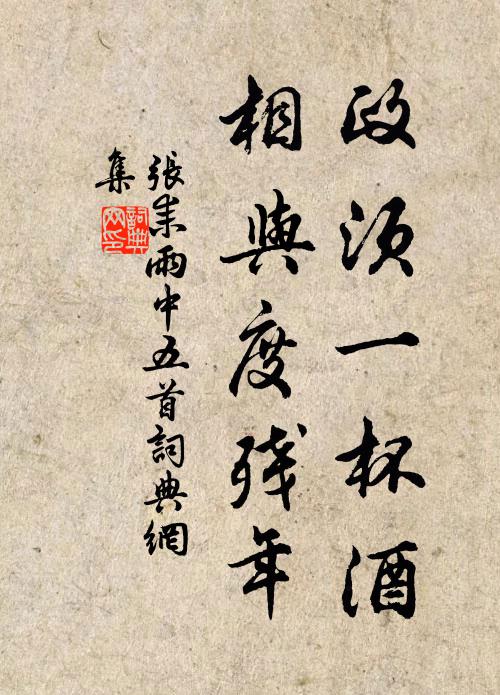 政须一杯酒
相與度残年
張耒雨中五首詞典網
集
詞典
网印